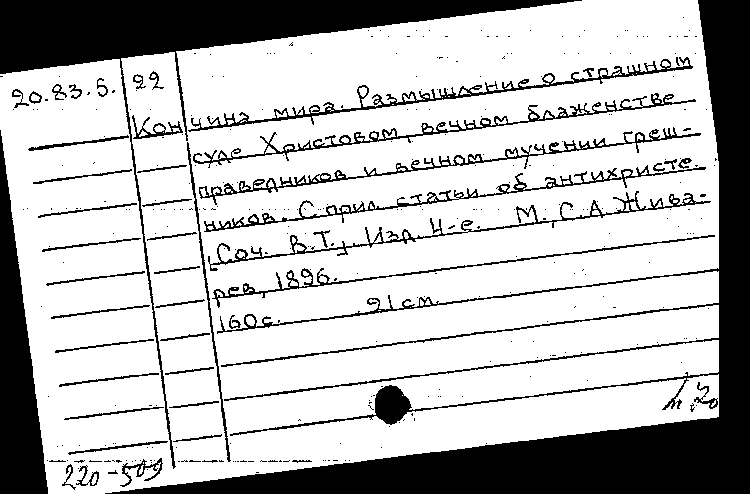 20.83.5. 22
Кончина мира. Размышление о страшном
суде Христовом, вечном блаженстве
праведников и вечном мучении греш-
ников. С прил. статьи об антихристе.
[Соч. В.Т.]. Изд. 4-е. М., С.А. Жива-
рев, 1896.
160 с. 21 см.
220-509